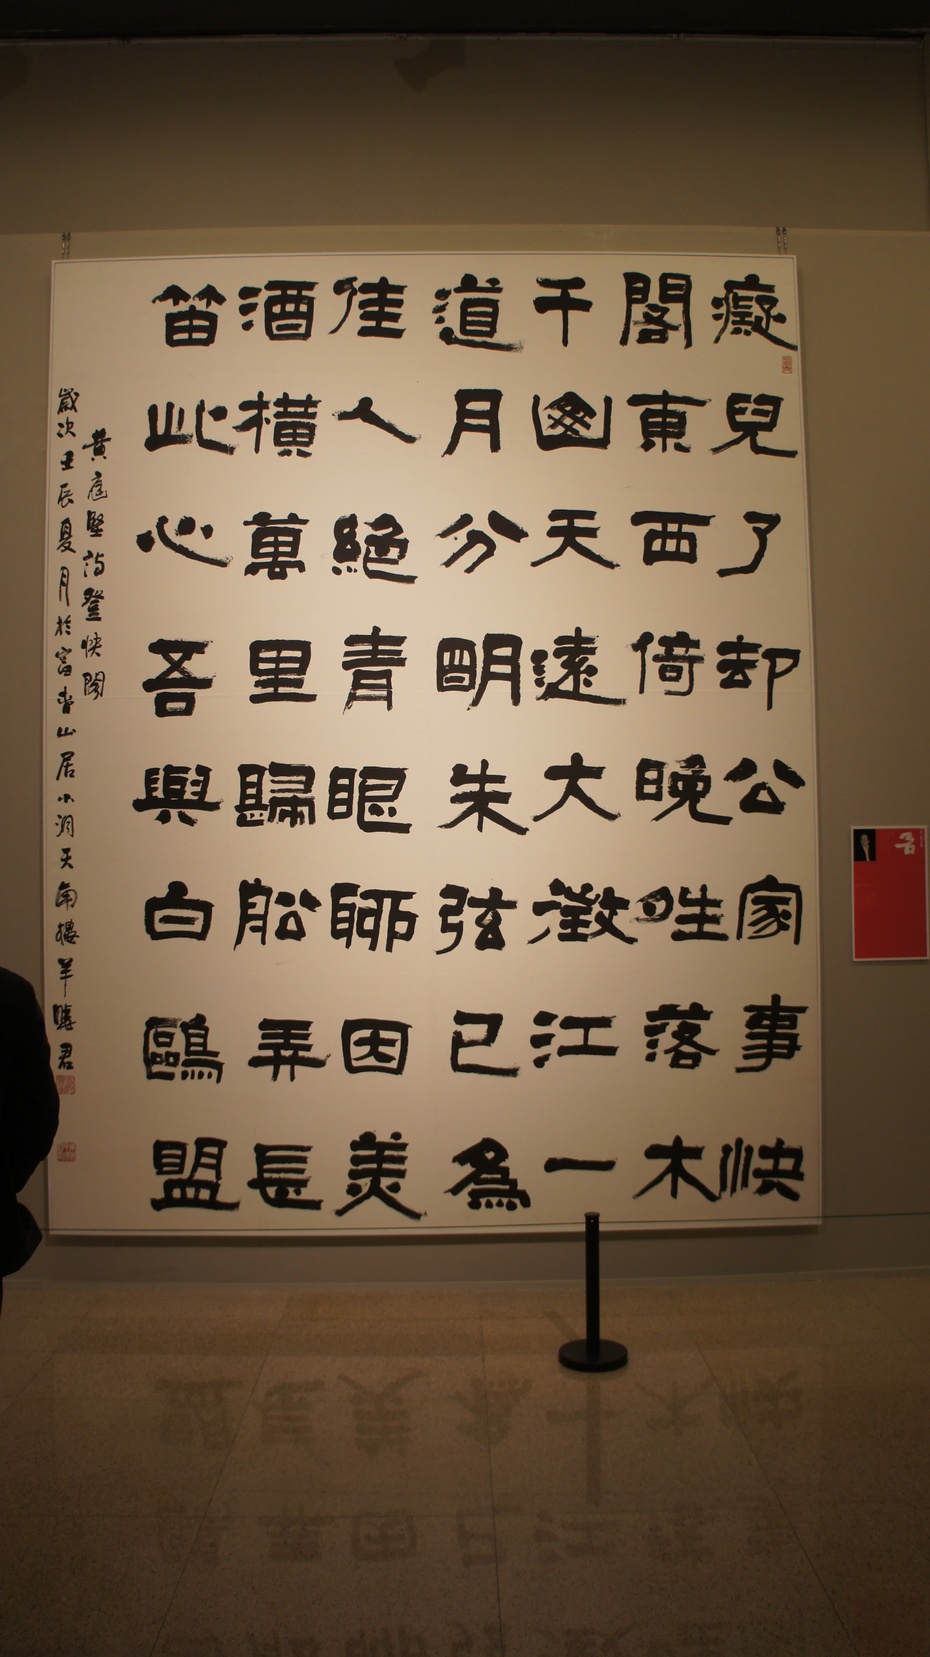 癡兒了却公家事快
閣東西倚晚暒落木
千山天遠大澂江一
道月分明朱弦已為
佳人絕青眼聊因美
酒橫萬里歸舩弄長
笛此心吾與白鷗盟
黃庭堅詩登快閣
歲次壬辰夏月於富春山居小洞天南樓羊曉君